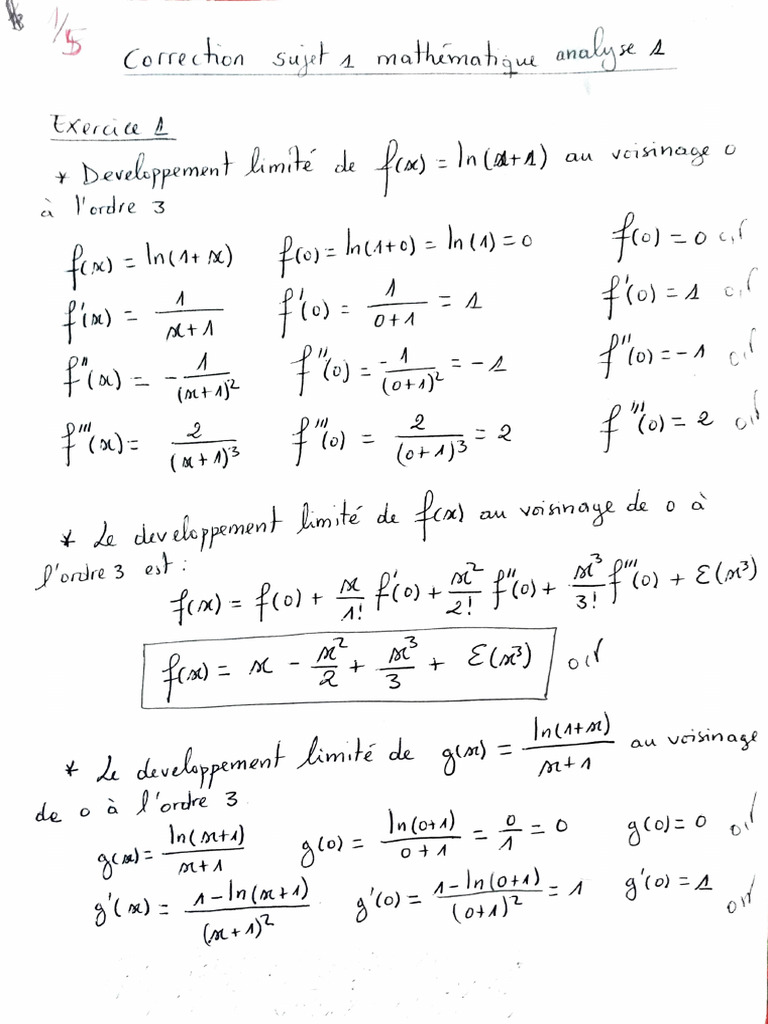 1/5
Correction sujet 1 mathématique analyse 1
Exercice 1
* Developpement limité de f(x) = ln(x+1) au voisinage 0
à l'ordre 3
f(x) = ln(1+x)   f(0) = ln(1+0) = ln(1) = 0   f(0) = 0
f'(x) = 1/(x+1)   f'(0) = 1/(0+1) = 1   f'(0) = 1
f''(x) = -1/(x+1)²   f''(0) = -1/(0+1)² = -1   f''(0) = -1
f'''(x) = 2/(x+1)³   f'''(0) = 2/(0+1)³ = 2   f'''(0) = 2
* Le developpement limité de f(x) au voisinage de 0 à
l'ordre 3 est :
f(x) = f(0) + x/1! f'(0) + x²/2! f''(0) + x³/3! f'''(0) + Ɛ(x³)
f(x) = x - x²/2 + x³/3 + Ɛ(x³)
* Le developpement limité de g(x) = ln(1+x)/(x+1) au voisinage
de 0 à l'ordre 3
g(x) = ln(x+1)/(x+1)   g(0) = ln(0+1)/(0+1) = 0/1 = 0   g(0) = 0
g'(x) = (1-ln(x+1))/(x+1)²   g'(0) = (1-ln(0+1))/(0+1)² = 1   g'(0) = 1